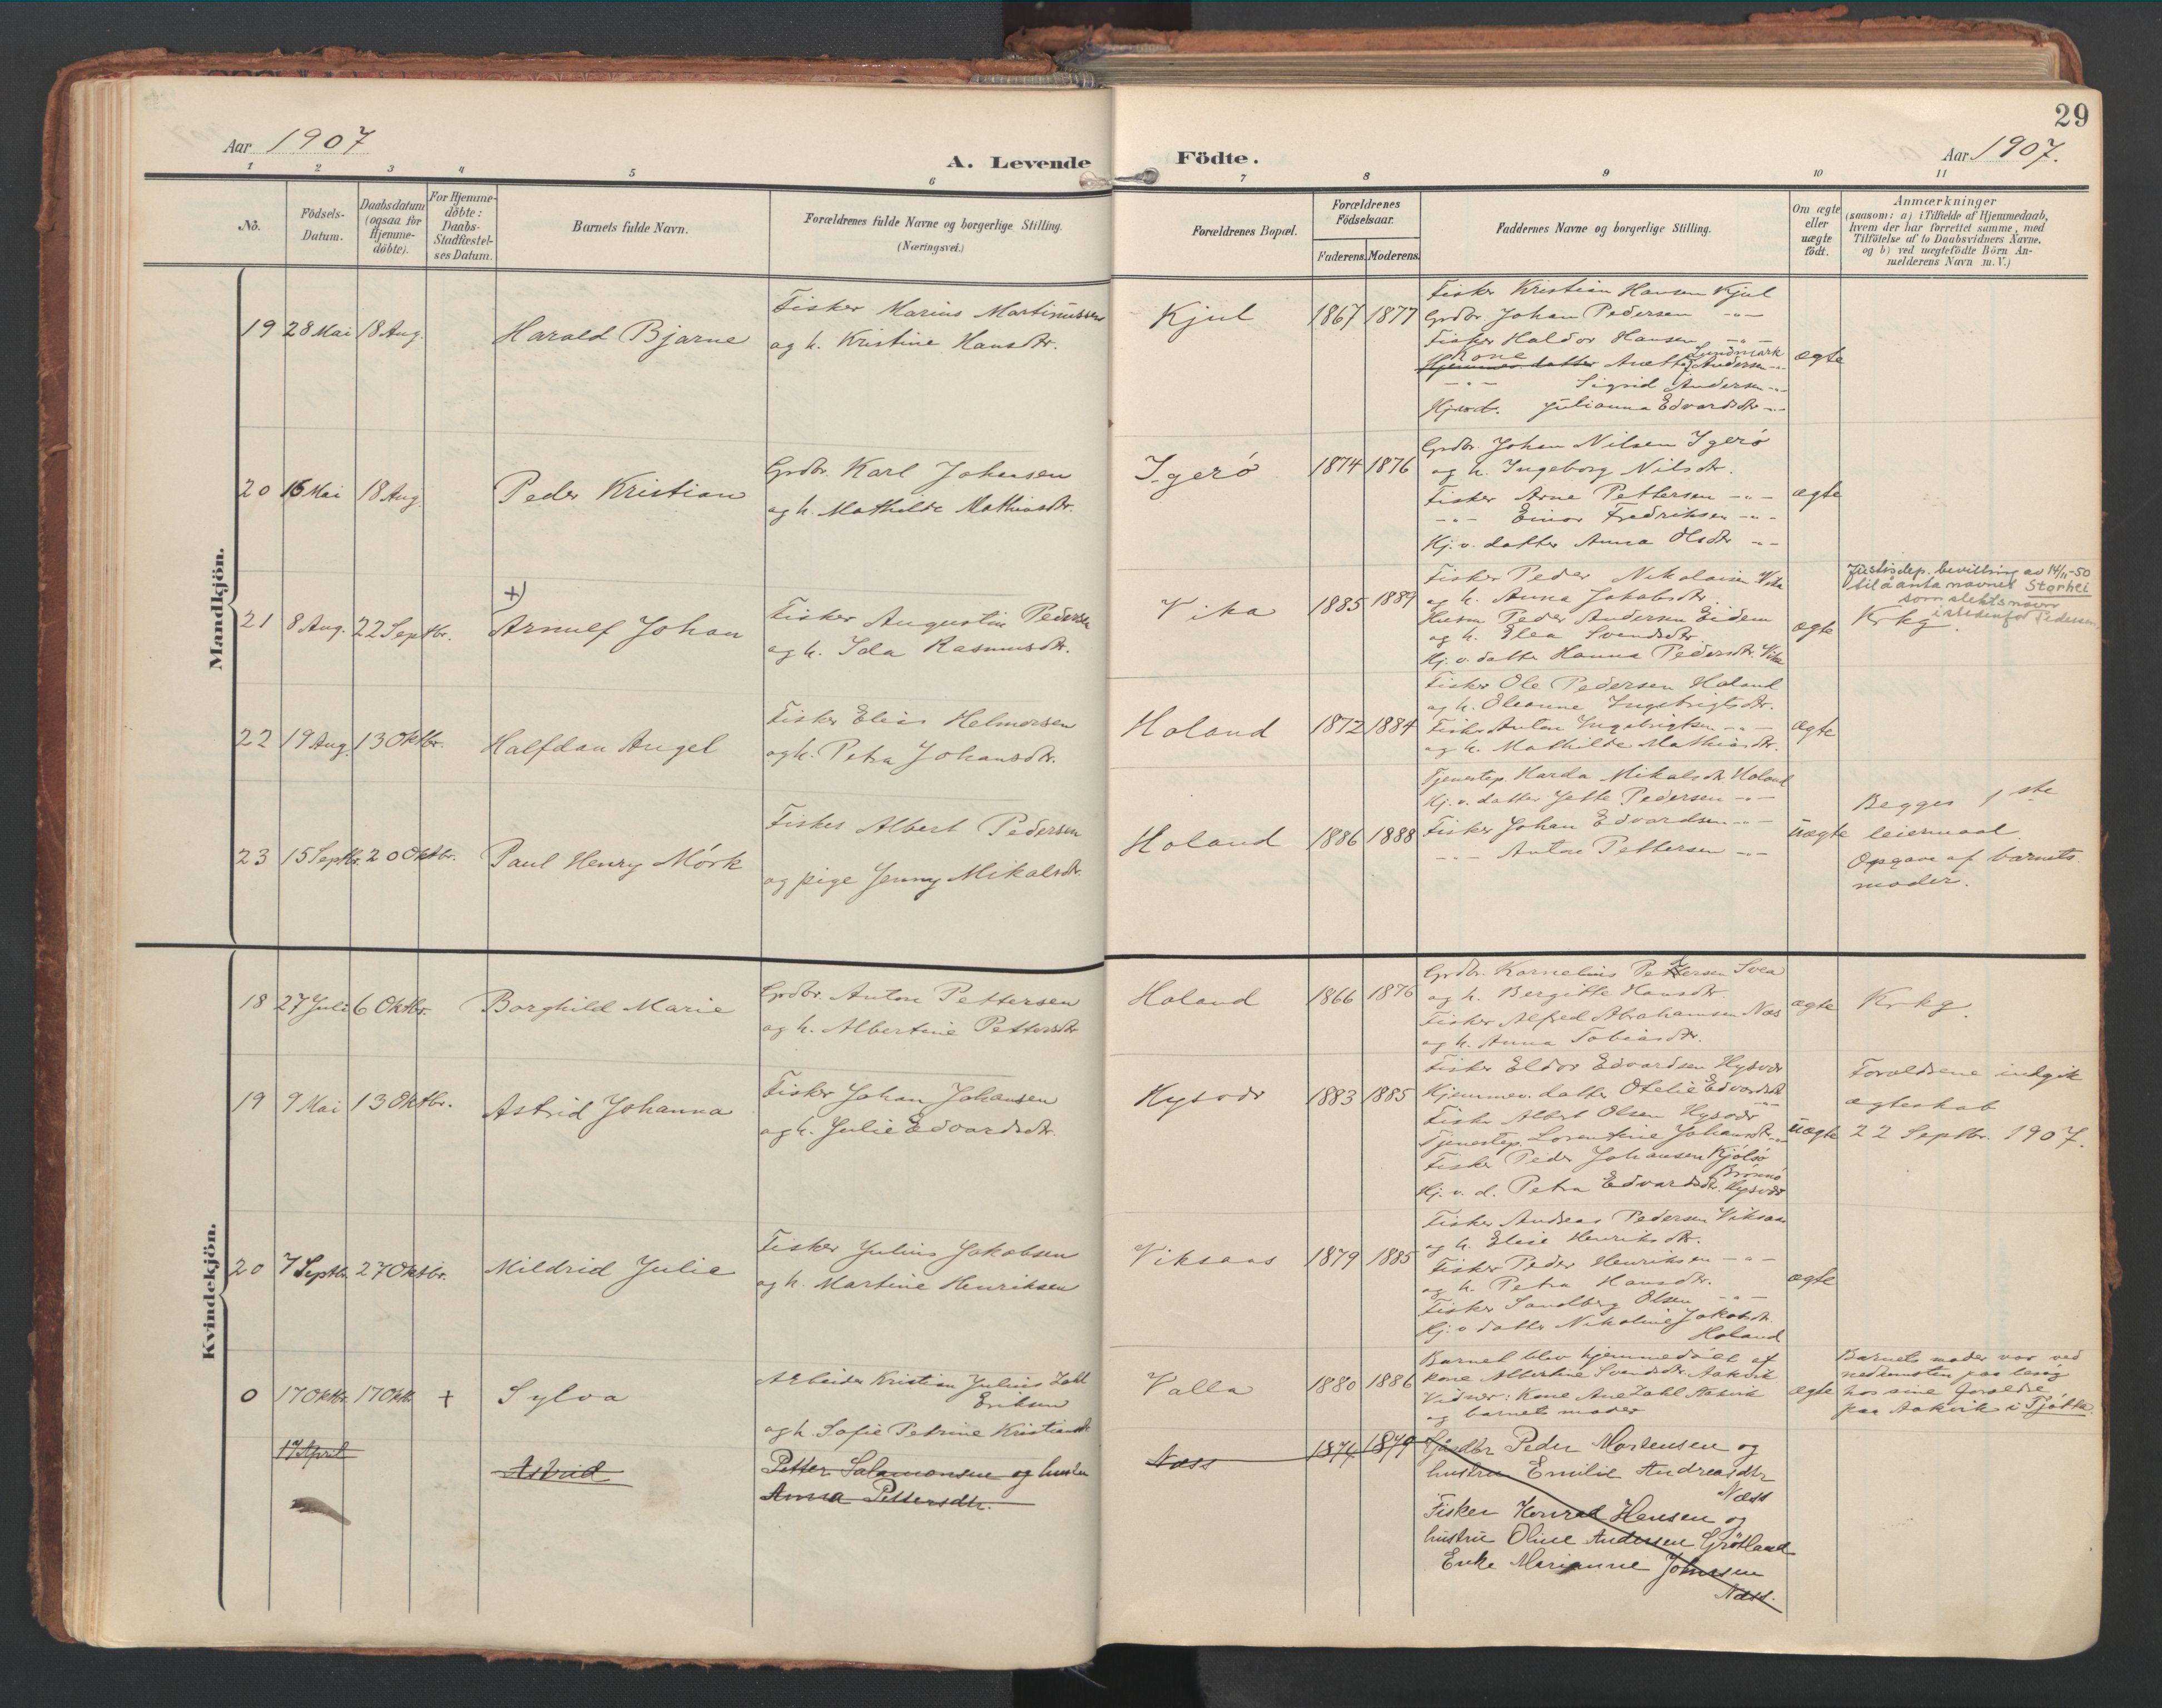 29
Aar 1907
A. Levende Födte.
Aar 1907.
1 2 3 4 5 6 7 8 9 10 11
No.
Födsels-
Datum.
Daabsdatum
(ogsaa for
Hjemme-
döbte).
For Hjemme-
döbte:
Daabs-
Stadfæstel-
ses Datum.
Barnets fulde Navn.
Forældrenes fulde Navne og borgerlige Stilling.
(Næringsvei.)
Forældrenes Bopæl.
Forældrenes
Födselsaar.
Faderens. Moderens.
Faddernes Navne og borgerlige Stilling.
Om ægte
eller
uægte
födt.
Anmærkninger
(saasom: a) i Tilfælde af Hjemmedaab,
hvem der har forrettet samme, med
Tilföielse af to Daabsvidners Navne.
og b) ved uegtefödte Börn An-
melderens Navn m. V.)
Mandkjön.
19 28 Mai 18 Aug. Harald Bjarne
Fisker Marius Martinussen
og h. Kristine Hansdtr.
Kjul 1867 1877
Fisker Kristian Hansen Kjul
Grdbr. Johan Pedersen -"-
Fisker Haldor Hansen -"-
Kone Lundmark
Hjemmev. datter Anetta Andersen -"-
-"- Sigrid Andersen -"-
Hjvd. Julianna Edvardsdtr -"-
ægte
20 16 Mai 18 Aug. Peder Kristian
Grdbr Karl Johansen
og h. Mathilde Mathiasdtr.
Igerö 1874 1876
Grdbr. Johan Nilsen Igerö
og h. Ingeborg Nilsdtr.
Fisker Arne Pettersen -"-
-"- Einar Fredriksen -"-
Hj. v. datter Anna Olsdtr -"-
ægte
+)
21 8 Aug. 22 Septbr. Arnulf Johan
Fisker Augustin Pedersen
og h. Ida Rasmusdtr.
Vika 1885 1889
Fisker Peder Nikolaisen Vika
og h. Anna Jakobsdtr.
Husm Peder Andersen Eidem
og h. Elea Svendsdtr.
Hj. v. datter Hanna Pedersdtr. Vika
ægte
Justisdep. bevilling av 14/11-50
til å anta navnet Storhei
som slektsnavn
istedenfor Pedersen.
Krkg.
22 19 Aug. 13 Oktbr. Halfdan Angel
Fisker Elias Helmersen
og h. Petra Johansdtr.
Holand 1872 1884
Fisker Ole Pedersen Holand
og h. Oleanne Ingebrigtsdtr.
Fisker Anton Ingebrigtsen -"-
og h. Mathilde Mathiasdtr.
ægte
23 15 Septbr. 20 Oktbr. Paul Henry Mörk
Fisker Albert Pedersen
og pige Jenny Mikalsdtr.
Holand 1886 1888
Tjenestep. Harda Mikalsdtr. Holand
Hj. v. datter Jette Pedersen -"-
Fisker Johan Edvardsen -"-
-"- Anton Pettersen -"-
uægte
Begges 1ste
leiermaal.
Opgave af barnets
moder.
Kvindekjön.
18 27 Juli 6 Oktbr. Borghild Marie
Grdbr. Anton Pettersen
og h. Albertine Pettersdtr
Holand 1866 1876
Grdbr. Kornelius Pettersen Svea
og h. Bergitte Hansdtr.
Fisker Alfred Abrahamsen Næs
og h. Anna Tobiasdtr.
ægte
Krkg.
19 9 Mai 13 Oktbr. Astrid Johanna
Fisker Johan Johansen
og h. Julie Edvardsdtr.
Hysvær 1883 1885
Fisker Eldor Edvardsen Hysvær
Hjemmev. datter Otelie Edvardsdtr -"-
Fisker Albert Olsen Hysvær
Tjenestep. Lorentine Johansdtr -"-
Fisker Peder Johansen Kjölsö
Brönnö
Hj. v. d. Petra Edvardsdtr. Hysvær
uægte
Forældrene indgik
ægteskab
22 Septbr. 1907.
20 7 Septbr. 27 Oktbr. Mildrid Julie
Fisker Julius Jakobsen
og h. Martine Henriksen
Viksaas 1879 1885
Fisker Andreas Pedersen Viksaas
og h. Elise Henriksdtr.
Fisker Peder Henriksen -"-
og h. Petra Hansdtr.
Fisker Sandberg Olsen -"-
Hj. v datter Nikoline Jakobsdtr.
Holand
ægte
0 17 Oktbr. 17 Oktb. + Sylva
Arbeider Kristian Julius Zahl
Eriksen
og h. Sofie Petrine Kristiansdtr
Valla 1880 1886
Barnet blev hjemmedöbt af
kone Albertine Svendsdtr. Aakvik
Vidner: Kone Ane Zahl Aakvik
og barnets moder
ægte
Barnets moder var ved
nedkomsten paa besög
hos sine forældre
paa Aakvik i Tjötta.
17 April Astrid
Petter Salamonsen og hustru
Anna Pettersdtr.
Næss 1874 1879
Gårdbr Peder Mortensen og
hustru Emilie Andreasdtr
Næss
Fisker Konrad Hansen og
hustru Oline Andersen Grötland
Enke Marianne Johnsen
Næss.